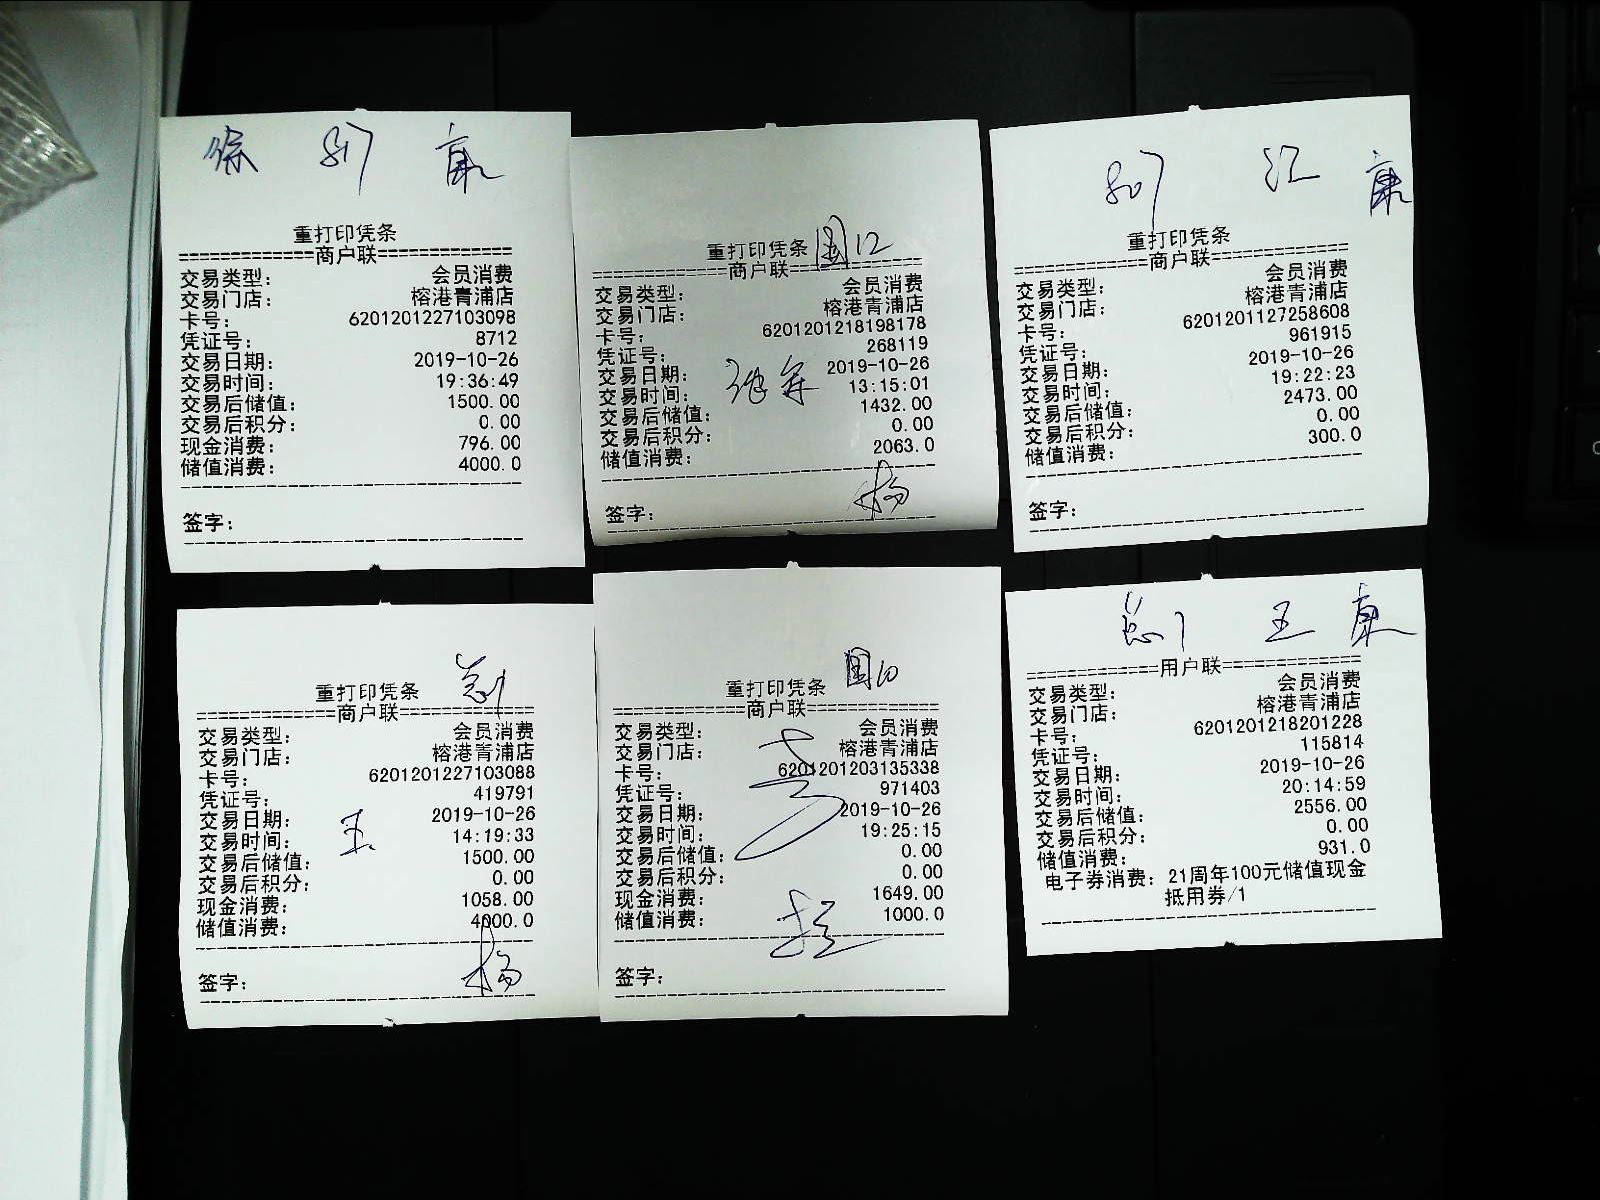 徐 817 康
重打印凭条
=============商户联=============
交易类型： 会员消费
交易门店： 榕港青浦店
卡号： 6201201227103098
凭证号： 8712
交易日期： 2019-10-26
交易时间： 19:36:49
交易后储值： 1500.00
交易后积分： 0.00
现金消费： 796.00
储值消费： 4000.0
签字：
重打印凭条 国12
=============商户联=============
交易类型： 会员消费
交易门店： 榕港青浦店
卡号： 6201201218198178
凭证号： 268119
交易日期： 2019-10-26
交易时间： 13:15:01
交易后储值： 1432.00
交易后积分： 0.00
储值消费： 2063.0
杨
签字：
807 汇 康
重打印凭条
=============商户联=============
交易类型： 会员消费
交易门店： 榕港青浦店
卡号： 6201201127258608
凭证号： 961915
交易日期： 2019-10-26
交易时间： 19:22:23
交易后储值： 2473.00
交易后积分： 0.00
储值消费： 300.0
签字：
重打印凭条
=============商户联=============
交易类型： 会员消费
交易门店： 榕港青浦店
卡号： 6201201227103088
凭证号： 419791
交易日期： 2019-10-26
交易时间： 王 14:19:33
交易后储值： 1500.00
交易后积分： 0.00
现金消费： 1058.00
储值消费： 4000.0
签字： 杨
重打印凭条 国10
=============商户联=============
交易类型： 会员消费
交易门店： 榕港青浦店
卡号： 6201201203135338
凭证号： 971403
交易日期： 2019-10-26
交易时间： 19:25:15
交易后储值： 0.00
交易后积分： 0.00
现金消费： 1649.00
储值消费： 1000.0
签字：
总1 王 康
=============用户联=============
交易类型： 会员消费
交易门店： 榕港青浦店
卡号： 6201201218201228
凭证号： 115814
交易日期： 2019-10-26
交易时间： 20:14:59
交易后储值： 2556.00
交易后积分： 0.00
储值消费： 931.0
电子券消费：21周年100元储值现金
抵用券/1